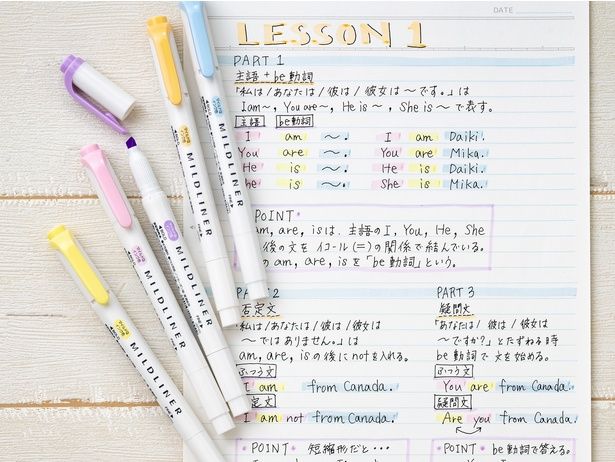 DATE
LESSON 1
PART 1
主語 + be動詞
「私は/あなたは/彼は/彼女は〜です。」は
I am〜, You are〜, He is〜, She is〜で表す。
主語 be動詞
I am 〜. I am Daiki.
You are 〜. You are Mika.
He is 〜. He is Daiki.
She is 〜. She is Mika.
POINT
am, are, isは、主語のI, You, He, She
後の文をイコール(=)の関係で結んでいる。
am, are, isを「be動詞」という。
2
否定文
私は/あなたは/彼は/彼女は
〜ではありません。」は
am, are, isの後にnotを入れる。
ふつう文
I am from Canada.
定文
I am not from Canada.
・POINT・ 短縮形だと…
PART 3
疑問文
「あなたは/彼は/彼女は
〜ですか?」とたずねる時
be動詞で文を始める。
ふつう文
You are from Canada.
疑問文
Are you from Canada.
・POINT・ be動詞で答える。
MILDLINER
MILDLINER
MILDLINER
MILDLINER
MILDLINER